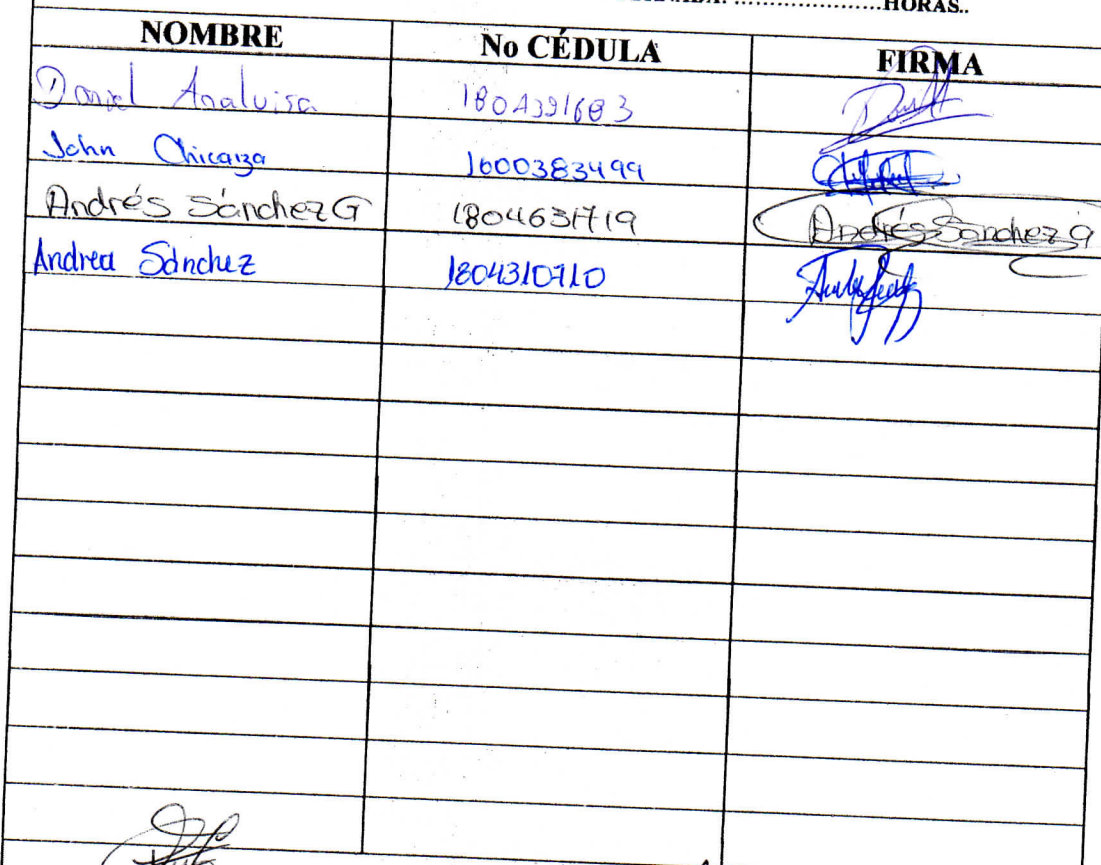 HORAS..
NOMBRE No CÉDULA FIRMA
Daniel Analuisa 1804391683
John Chicaiza 1600383499
Andrés Sánchez G 1804631719 Andrés Sánchez G
Andrea Sánchez 1804310710